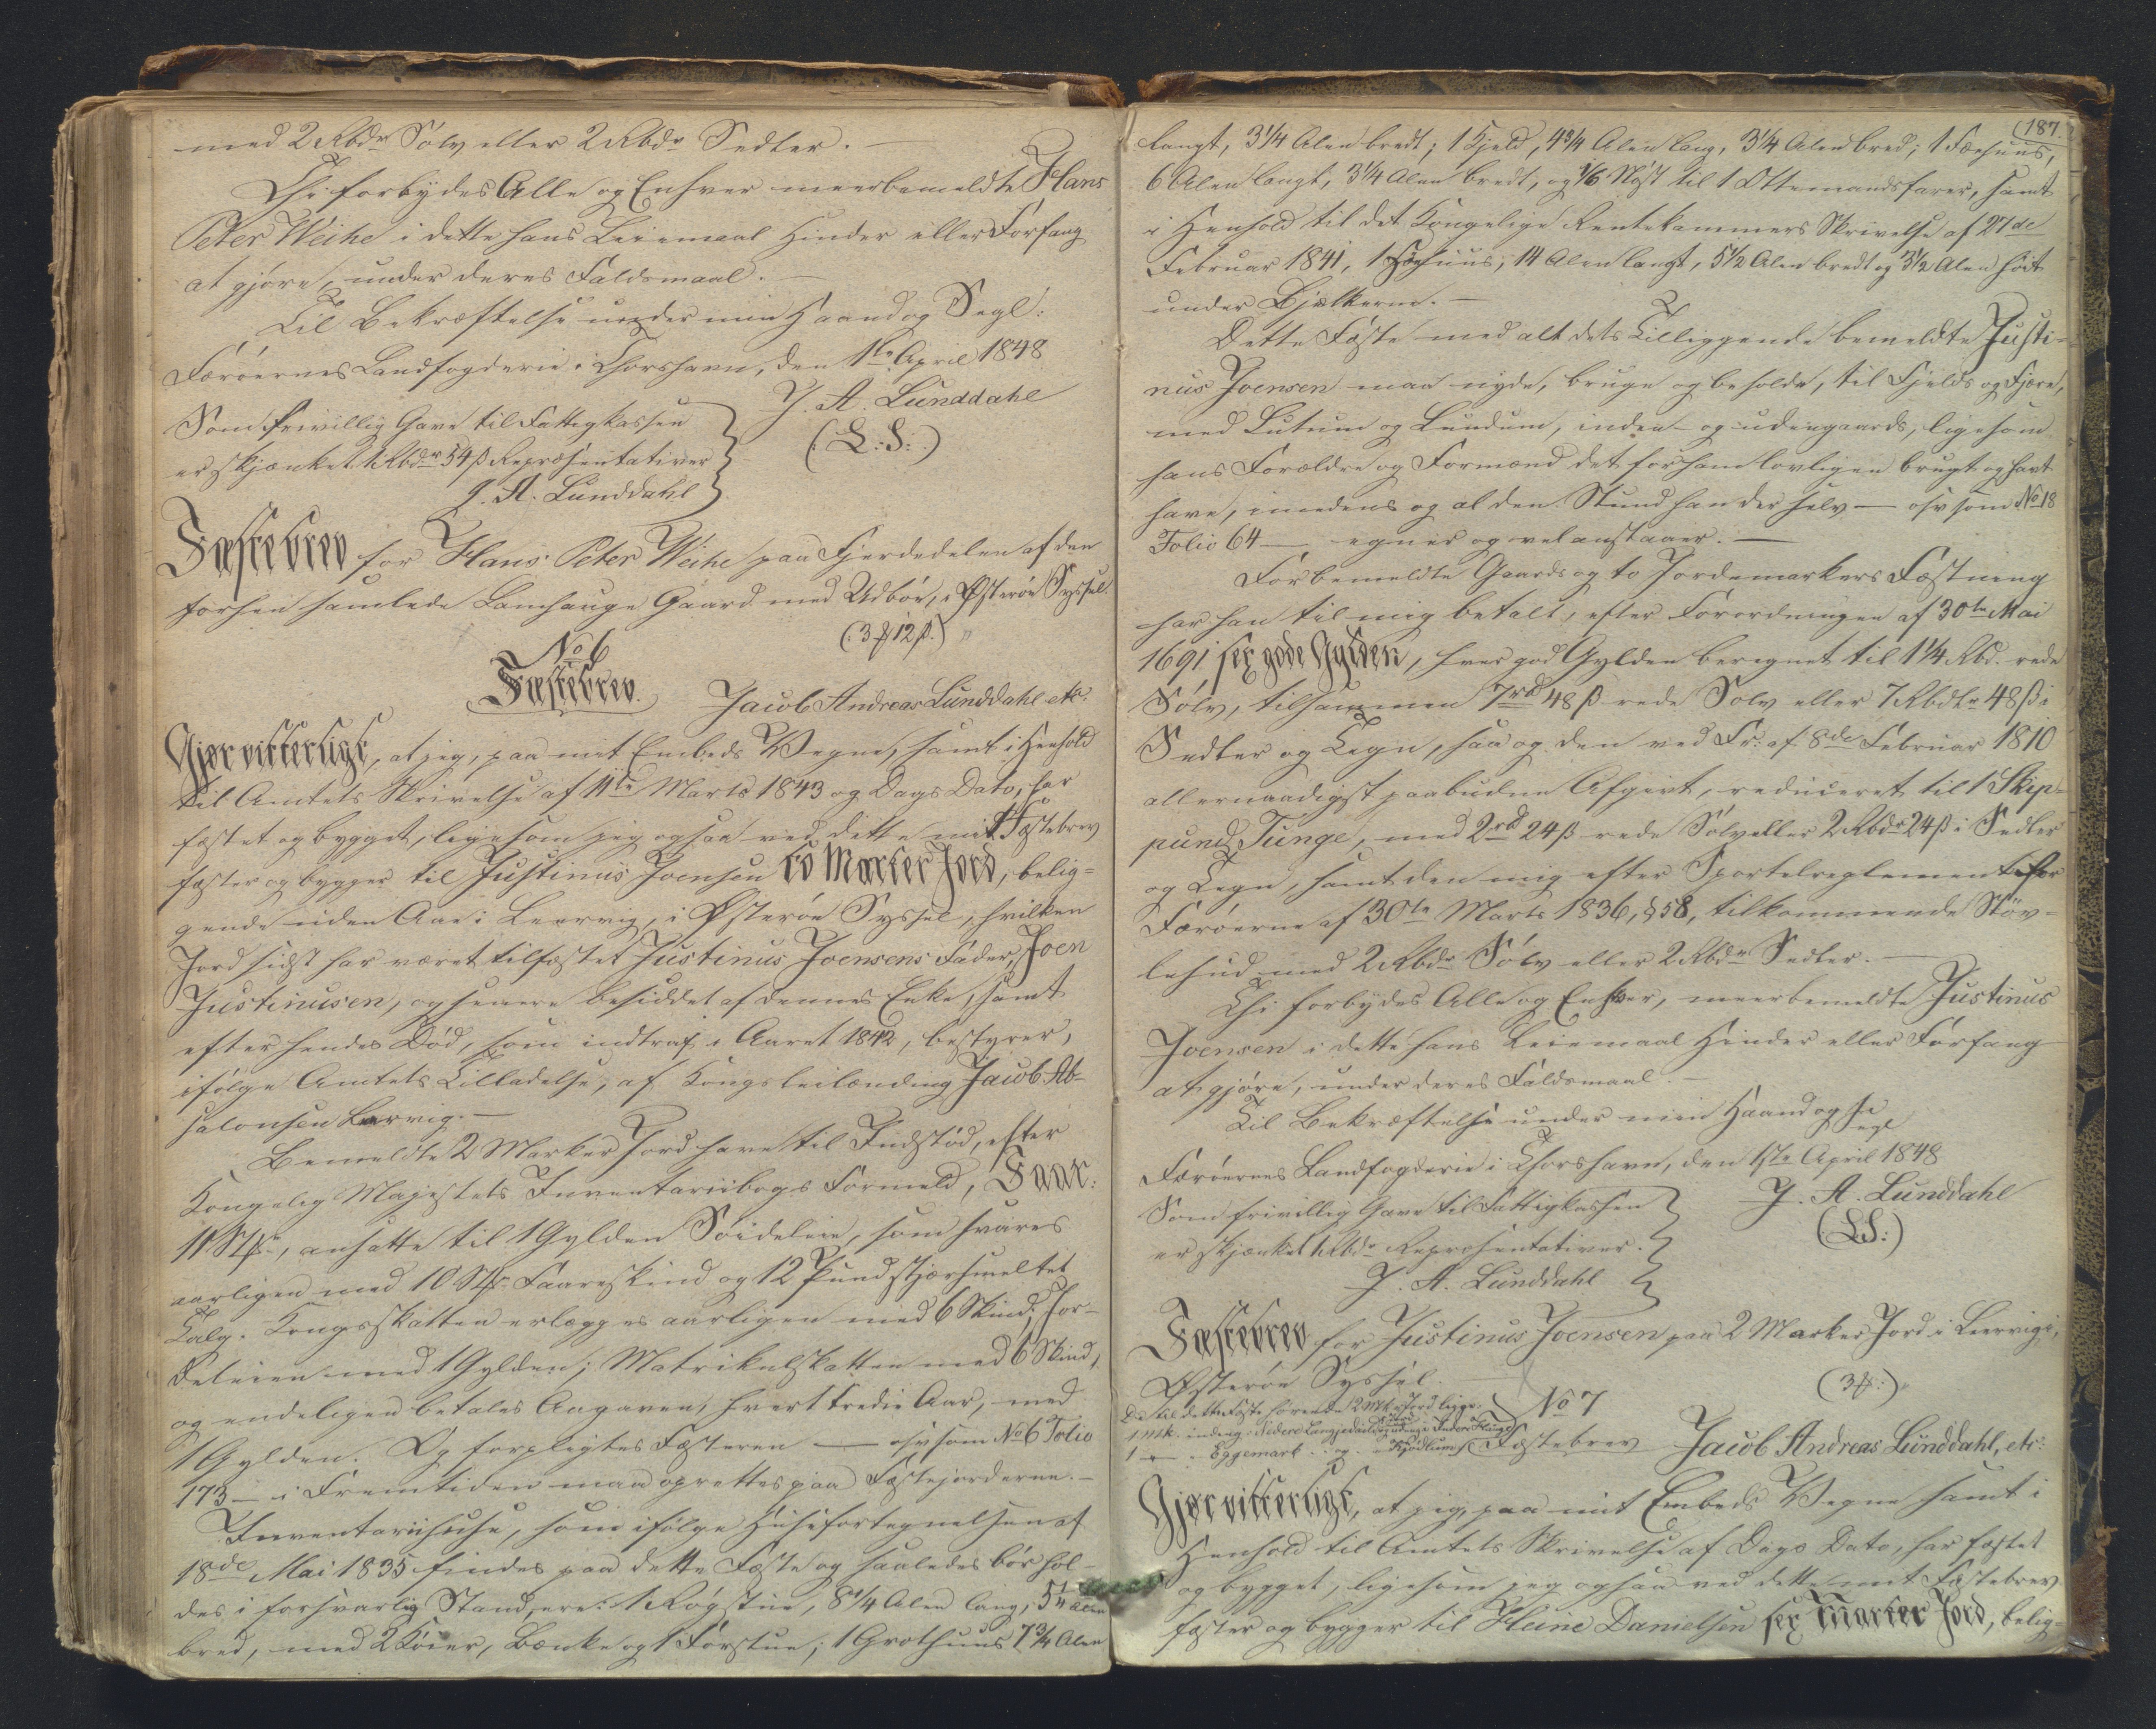 med 2 Rbdr Sølv eller 2 Rbdr Sedler. —
Thi forbydes Alle og Enhver meerbemeldte Hans
Peter Weihe i dette hans Leiemaal Hinder eller Forfang
at gjøre, under deres Faldsmaal. —
Til Bekræftelse under min Haand og Segl:
Færøernes Landfogderie i Thorshavn, den 1ste April 1848
J. A. Lunddahl
(L:S:)
Som frivillig Gave til Fattigkassen
er skjænket 1 Rbdr 54 ß Repræsentativer
J. A. Lunddahl
Fæstebrev for Hans Peter Weihe paa Fjerdedelen af den
forhen samlede Lamhauge Gaard med Udbøe, i Østerøe Syssel.
(3 ₰ 12 ß.)
No 6
Fæstebrev.
Jacob Andreas Lunddahl etc.
Gjør vitterligt, at jeg, paa mit Embeds Vegne, samt i Henhold
til Amtets Skrivelse af 11te Marts 1843 og Dags Dato, har
fæstet og bygget, ligesom jeg ogsaa ved dette mit Fæstebrev
fæster og bygger til Justinus Joensen to Marker Jord, belig-
gende uden Aae i Leervig, i Østerøe Syssel, hvilken
Jord sidst har været tilfæstet Justinus Joensens Fader, Joen
Justinusen, og senere besiddet af dennes Enke, samt
efter hendes Død, som indtraf i Aaret 1842, bestyret,
ifølge Amtets Tilladelse, af Kongsleilænding Jacob Ab-
salonsen Lervig. —
Bemeldte 2 Marker Jord have til Indstød, efter
Kongelig Majestets Inventariibogs Formeld, Faar:
11 Stk., ansatte til 1 Gylden Søideleie, som svares
aarligen med 10 Stk. Faareskind og 12 Pund skjærsmeltet
Talg. Kongsskatten erlægges aarligen med 6 Skind; Jor-
deleien med 1 Gylden; Matrikulskatten med 6 Skind,
og endeligen betales Angaven, hvert tredie Aar, med
1 Gylden. Og forpligtes Fæsteren — osv som No 6 Folio
173 — i Fremtiden maa oprettes paa Fæstejorderne. —
Inventariihuse, som ifølge Husefortegnelsen af
18de Mai 1835 findes paa dette Fæste og saaledes bør hol-
des i forsvarlig Stand, ere: 1 Røgstue, 8 1/4 Alen lang, 5 1/4 Alen
bred, med 2 Køier, Bænke og 1 Forstue; 1 Grothuus 7 3/4 Alen
(187.
langt, 3 1/4 Alen bredt; 1 Hjeld, 4 3/4 Alen lang, 3 1/4 Alen bred; 1 Fæehuus,
6 Alen langt, 3 1/4 Alen bredt, og 1/6 Nøst til 1 Ottemandsfarer, samt
i Henhold til det Kongelige Rentekammers Skrivelse af 27de
Februar 1841, 1 Fæehuus, 14 Alen langt, 5 1/2 Alen bredt og 3 1/2 Alen høit
under Bjælkerne. —
Dette Fæste med alt dets Tilliggende bemeldte Justi-
nus Joensen maa nyde, bruge og beholde, til Fjelds og Fjære,
med Lutum og Lundum, inden- og udengaards, ligesom
hans Forældre og Formænd det for ham lovligen brugt og havt
have, imedens og al den Stund han der selv — osv som No 18
Folio 64 — egner og vel anstaaer. —
Forbemeldte Gaards og to Jordemarkers Fæstning
har han til mig betalt, efter Forordningen af 30te Mai
1691, sex gode Gylden, hver god Gylden beregnet til 1 1/4 Rbd. rede
Sølv, tilsammen 7 rd 48 ß rede Sølv eller 7 Rbdlr 48 ß i
Sedler og Tegn, saa og den ved Fr: af 8de Februar 1810
allernaadigst paabudne Afgivt, reduceret til 1 Skip-
pund Tunge, med 2 rd 24 ß rede Sølv eller 2 Rbdr 24 ß i Sedler
og Tegn, samt den mig efter Sportelreglementet for
Færøerne af 30te Marts 1836, § 58, tilkommende Støv-
lehud med 2 Rbdr Sølv eller 2 Rbdr Sedler. —
Thi forbydes Alle og Enhver, meerbemeldte Justinus
Joensen i dette hans Leiemaal Hinder eller Forfang
at gjøre, under deres Faldsmaal. —
Til Bekræftelse under min Haand og Segl
Færøernes Landfogderie i Thorshavn, den 1ste April 1848
J. A. Lunddahl
(L.S:)
Som frivillig Gave til Fattigkassen
er skjænket 1 Rbdr Repræsentativer.
J. A. Lunddahl
Fæstebrev for Justinus Joensen paa 2 Marker Jord i Leervig,
Østerøe Syssel. —
(3 ₰:)
De til dette Fæste hørende 2 Mk. Jord ligge:
1 Mk. indeng
1 — Eggemark og
No 7
Fæstebrev
Jacob Andreas Lunddahl, etc:
Gjør vitterligt, at jeg, paa mit Embeds Vegne samt i
Henhold til Amtets Skrivelse af Dags Dato, har fæstet
og bygget, ligesom jeg ogsaa ved dette mit Fæstebrev
fæster og bygger til Heine Danielsen sex Marker Jord, belig-